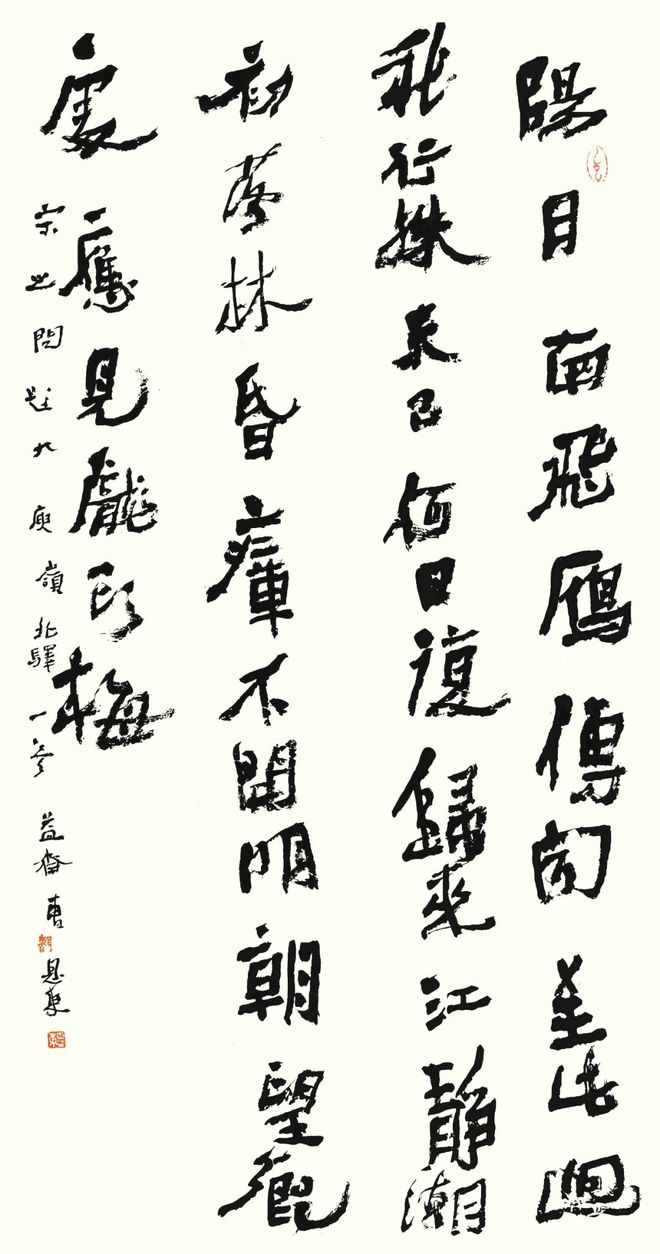 陽月南飛鴈傳聞至此迴
我行殊未已何日復歸來江靜潮
初落林昏瘴不開明朝望鄉
處應見隴頭梅
宋之問題大庾嶺北驛一首 益齋曹